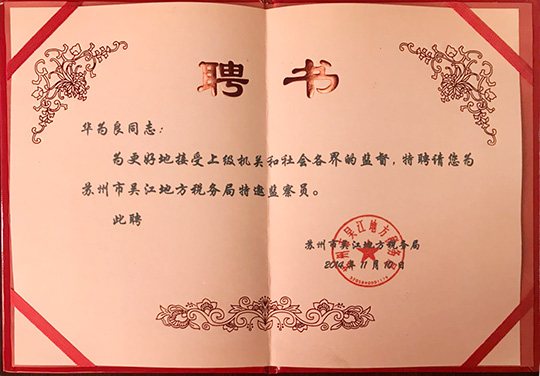 聘书
华为良同志：
为更好地接受上级机关和社会各界的监督，特聘请您为
苏州市吴江地方税务局特邀监察员。
此聘
苏州市吴江地方税务局
2014年11月10日